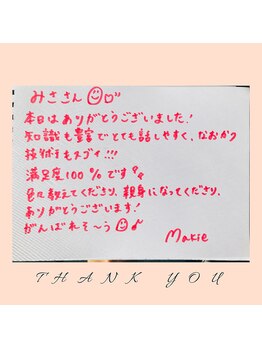 みささん
本日はありがとうございました!
知識も豊富でとても話しやすく、なおかつ
技術もスゴイ!!!
満足度100%です
色々教えてくださり、親身になってくださり、
ありがとうございます!
がんばれそ〜う♪
Makie
THANK YOU